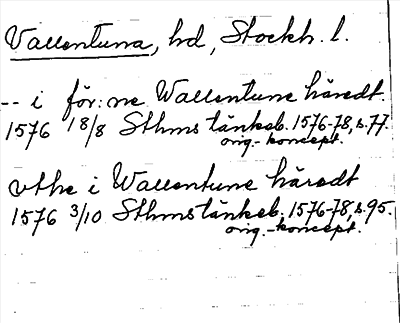 Vallentuna, hd, Stockh. l.
-- i för:ne Wallentune häredt.
1576 18/8 Sthms tänkeb. 1576-78, s. 77.
orig.-koncept.
vthe i Wallentune häredt
1576 3/10 Sthms tänkeb. 1576-78, s. 95.
orig.-koncept.